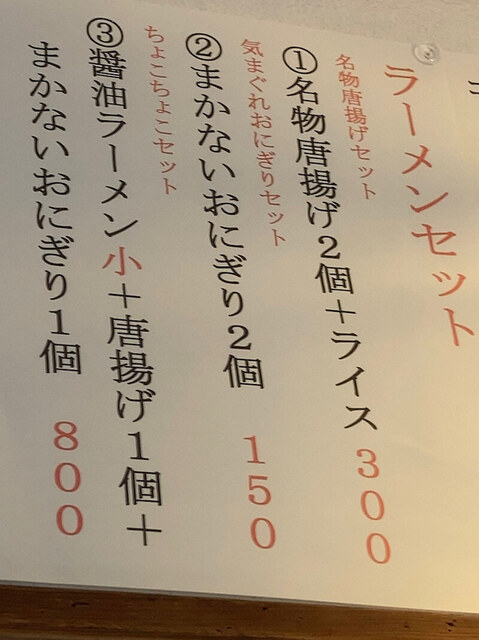 ラーメンセット
名物唐揚げセット
①名物唐揚げ2個+ライス 300
気まぐれおにぎりセット
②まかないおにぎり2個 150
ちょこちょこセット
③醤油ラーメン小+唐揚げ1個+
まかないおにぎり1個 800